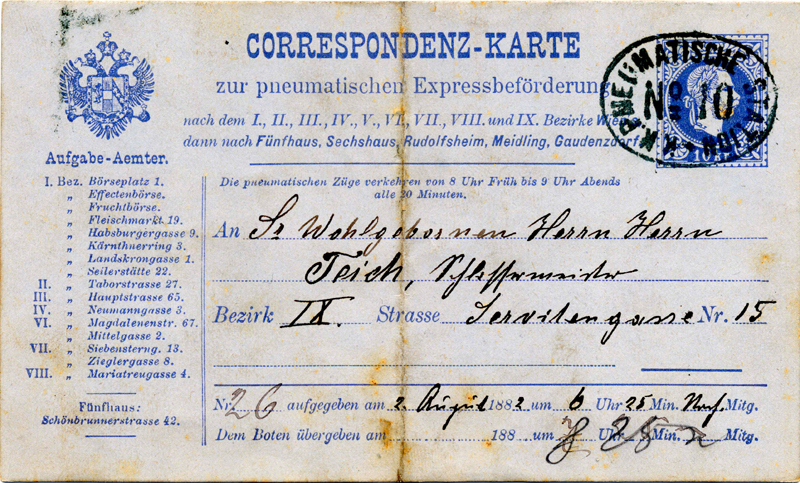 CORRESPONDENZ-KARTE
zur pneumatischen Expressbeförderung
nach dem I., II., III., IV., V., VI., VII., VIII. und IX. Bezirke Wien
dann nach Fünfhaus, Sechshaus, Rudolfsheim, Meidling, Gaudenzdorf
K.K. PNEUMATISCHE STATION
No 10
10
Aufgabe-Aemter.
I. Bez. Börseplatz 1.
„ Effectenbörse.
„ Fruchtbörse.
„ Fleischmarkt 19.
„ Habsburgergasse 9.
„ Kärnthnerring 3.
„ Landskrongasse 1.
„ Seilerstätte 22.
II. „ Taborstrasse 27.
III. „ Hauptstrasse 65.
IV. „ Neumanngasse 3.
VI. „ Magdalenenstr. 67.
„ Mittelgasse 2.
VII. „ Siebensterng. 13.
„ Zieglergasse 8.
VIII. „ Mariatreugasse 4.
Fünfhaus:
Schönbrunnerstrasse 42.
Die pneumatischen Züge verkehren von 8 Uhr Früh bis 9 Uhr Abends
alle 20 Minuten.
An Sr Wohlgebornen Herrn Herrn
Teich, Schlossermeister
Bezirk IX. Strasse Servitengasse Nr. 15
Nr. 26 aufgegeben am 2. August 1882 um 6 Uhr 25 Min. Nach. Mitg.
Dem Boten übergeben am 188 um Uhr Min. Mitg.